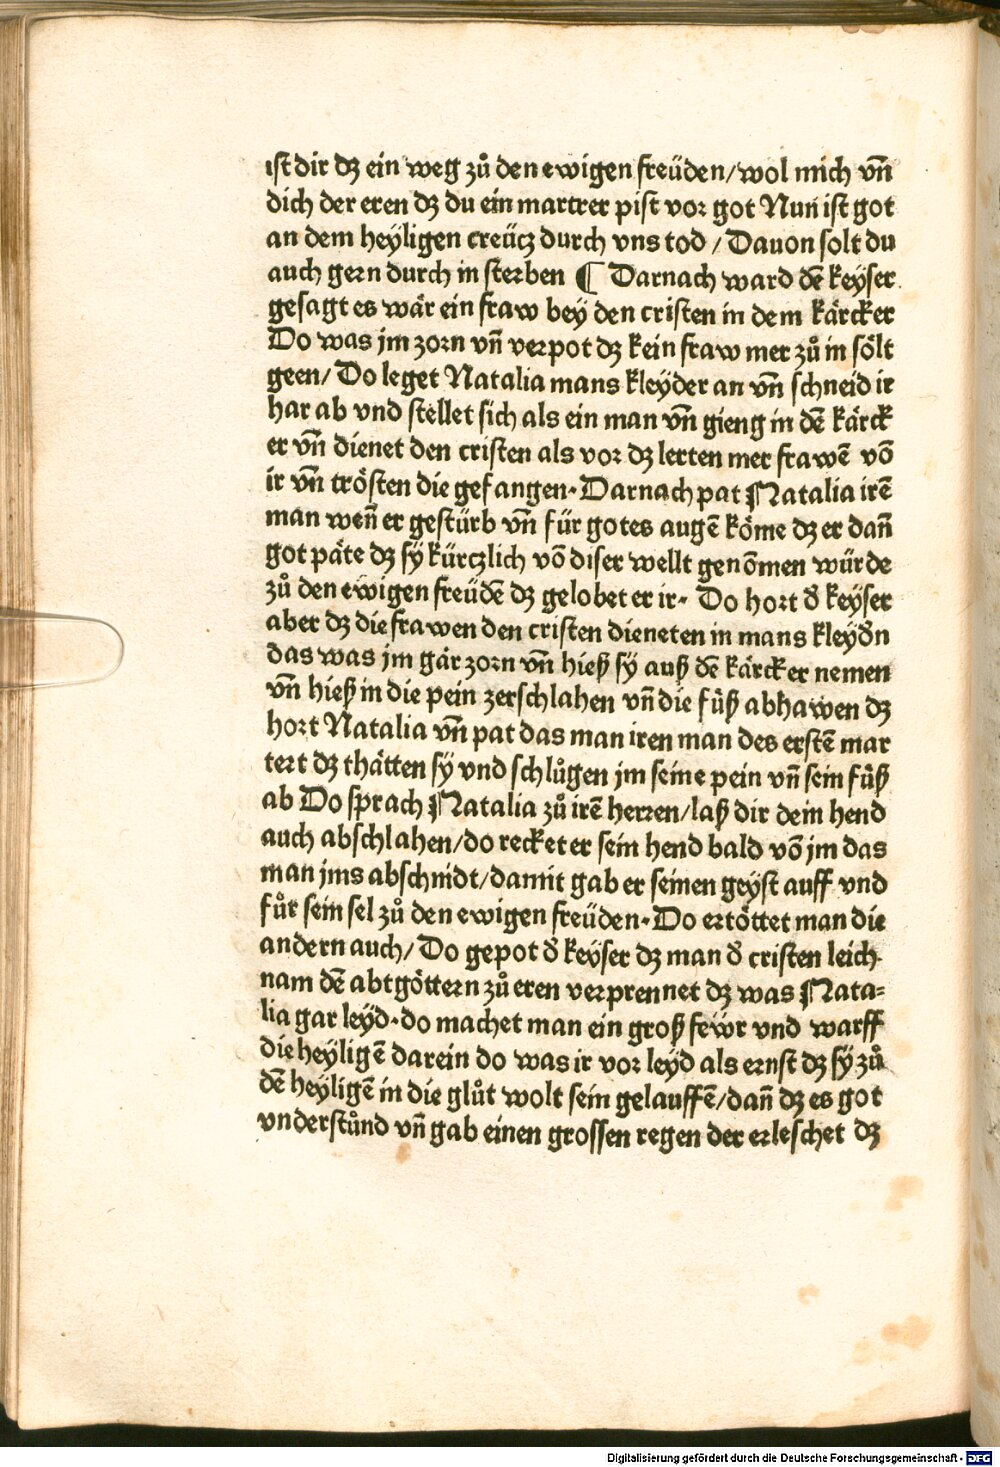 ist dir dꝫ ein weg zů den ewigen freüden/wol mich vn̄
dich der eren dꝫ du ein martrer pist vor got Nun ist got
an dem heyligen creücz durch vns tod / Dauon solt du
auch gern durch in sterben ¶ Darnach ward dē keyser
gesagt es wär ein fraw bey den cristen in dem kärcker
Do was jm zorn vn̄ verpot dꝫ kein fraw mer zů in sölt
geen/ Do leget Natalia mans kleyder an vn̄ schneid ir
har ab vnd stellet sich als ein man vn̄ gieng in dē kärck
er vn̄ dienet den cristen als vor dꝫ lerten mer frawē vō
ir vn̄ trösten die gefangen. Darnach pat Natalia irē
man wen̄ er gestürb vn̄ für gotes augē köme dꝫ er dan̄
got päte dꝫ sÿ kürczlich vō diser wellt genōmen würde
zů den ewigen freüdē dꝫ gelobet er ir. Do hort d̄ keyser
aber dꝫ die frawen den cristen dieneten in mans kleyd̄n
das was jm gär zorn vn̄ hieß sÿ auß dē kärcker nemen
vn̄ hieß in die pein zerschlahen vn̄ die füß abhawen dꝫ
hort Natalia vn̄ pat das man iren man des erstē mar
tert dꝫ thätten sÿ vnd schlůgen jm seine pein vn̄ sein füß
ab Do sprach Natalia zů irē herren/laß dir dein hend
auch abschlahen/do recket er sein hend bald vō jm das
man jms abschnidt/damit gab er seinen geyst auff vnd
fůr sein sel zů den ewigen freüden. Do ertöttet man die
andern auch/ Do gepot d̄ keyser dꝫ man d̄ cristen leich
nam dē abtgöttern zů eren verprennet dꝫ was Nata=
lia gar leyd. do machet man ein groß fewr vnd warff
die heyligē darein do was ir vor leyd als ernst dꝫ sÿ zů
dē heyligē in die glůt wolt sein gelauffē/dan̄ dꝫ es got
vnderstůnd vn̄ gab einen grossen regen der erleschet dꝫ
Digitalisierung gefördert durch die Deutsche Forschungsgemeinschaft - DFG